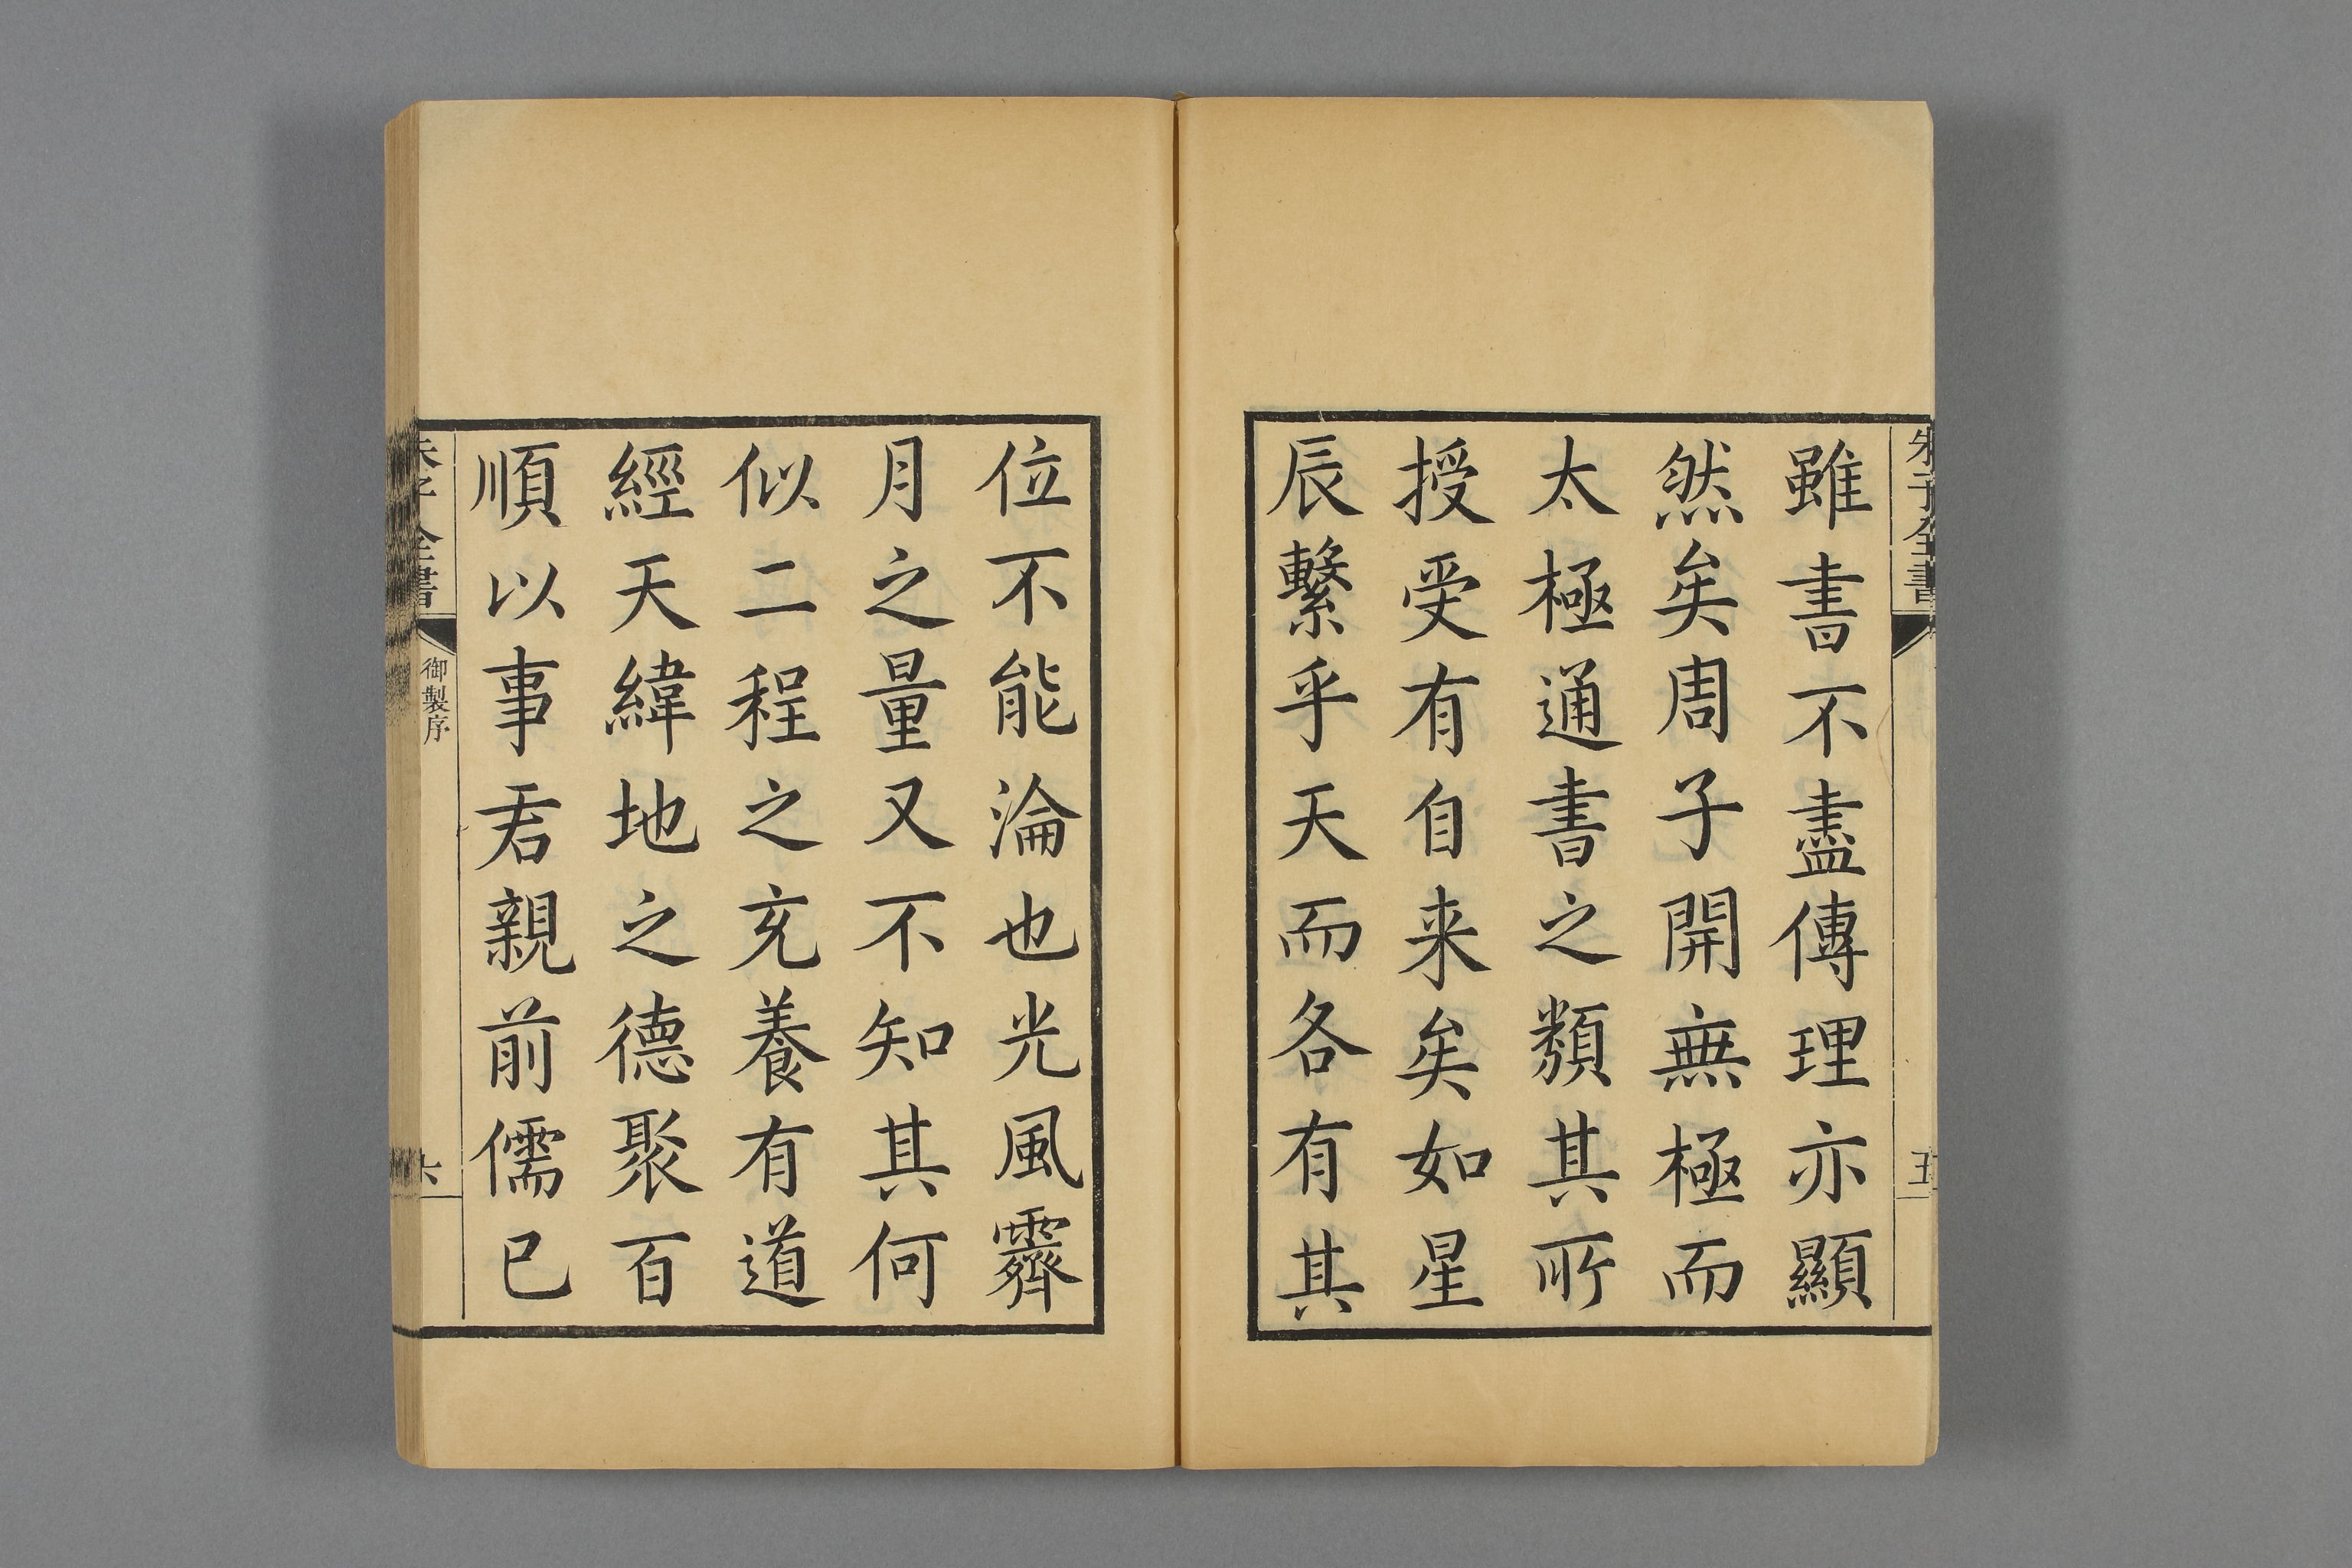 朱子全書
五
雖書不盡傳理亦顯
然矣周子開無極而
太極通書之類其所
授受有自来矣如星
辰繫乎天而各有其
位不能淪也光風霽
月之量又不知其何
似二程之充養有道
經天緯地之德聚百
順以事君親前儒已
朱子全書
御製序
六